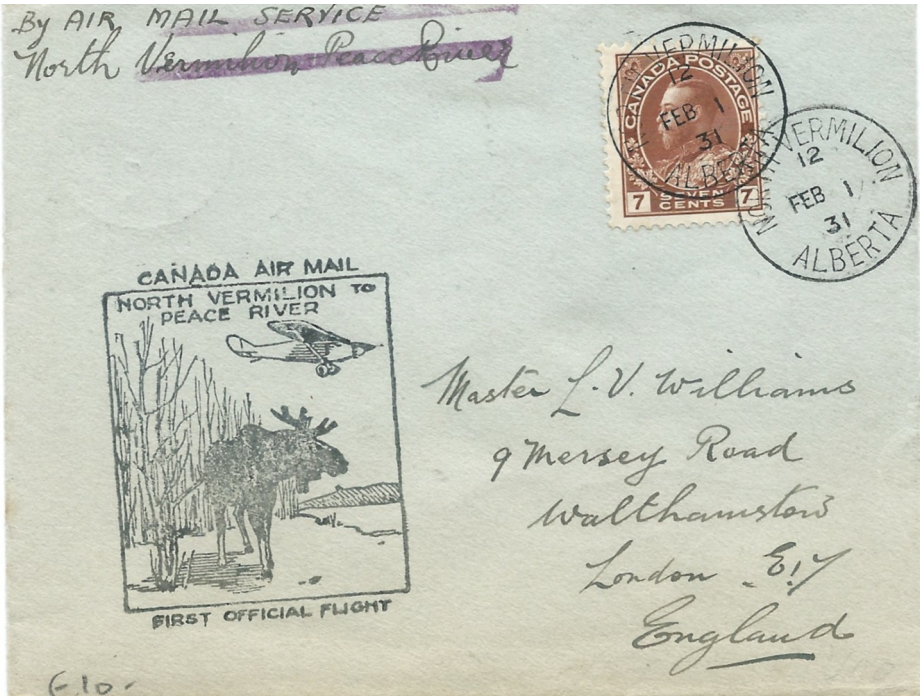 By AIR MAIL SERVICE
North Vermilion Peace River
VERMILION
12
FEB 1
31
ALBERTA
CANADA POSTAGE
7 SEVEN CENTS 7
NORTH VERMILION
12
FEB 1
31
ALBERTA
CANADA AIR MAIL
NORTH VERMILION TO
PEACE RIVER
FIRST OFFICIAL FLIGHT
Master L. V. Williams
9 Mersey Road
Walthamstow
London E.17
England
£10-